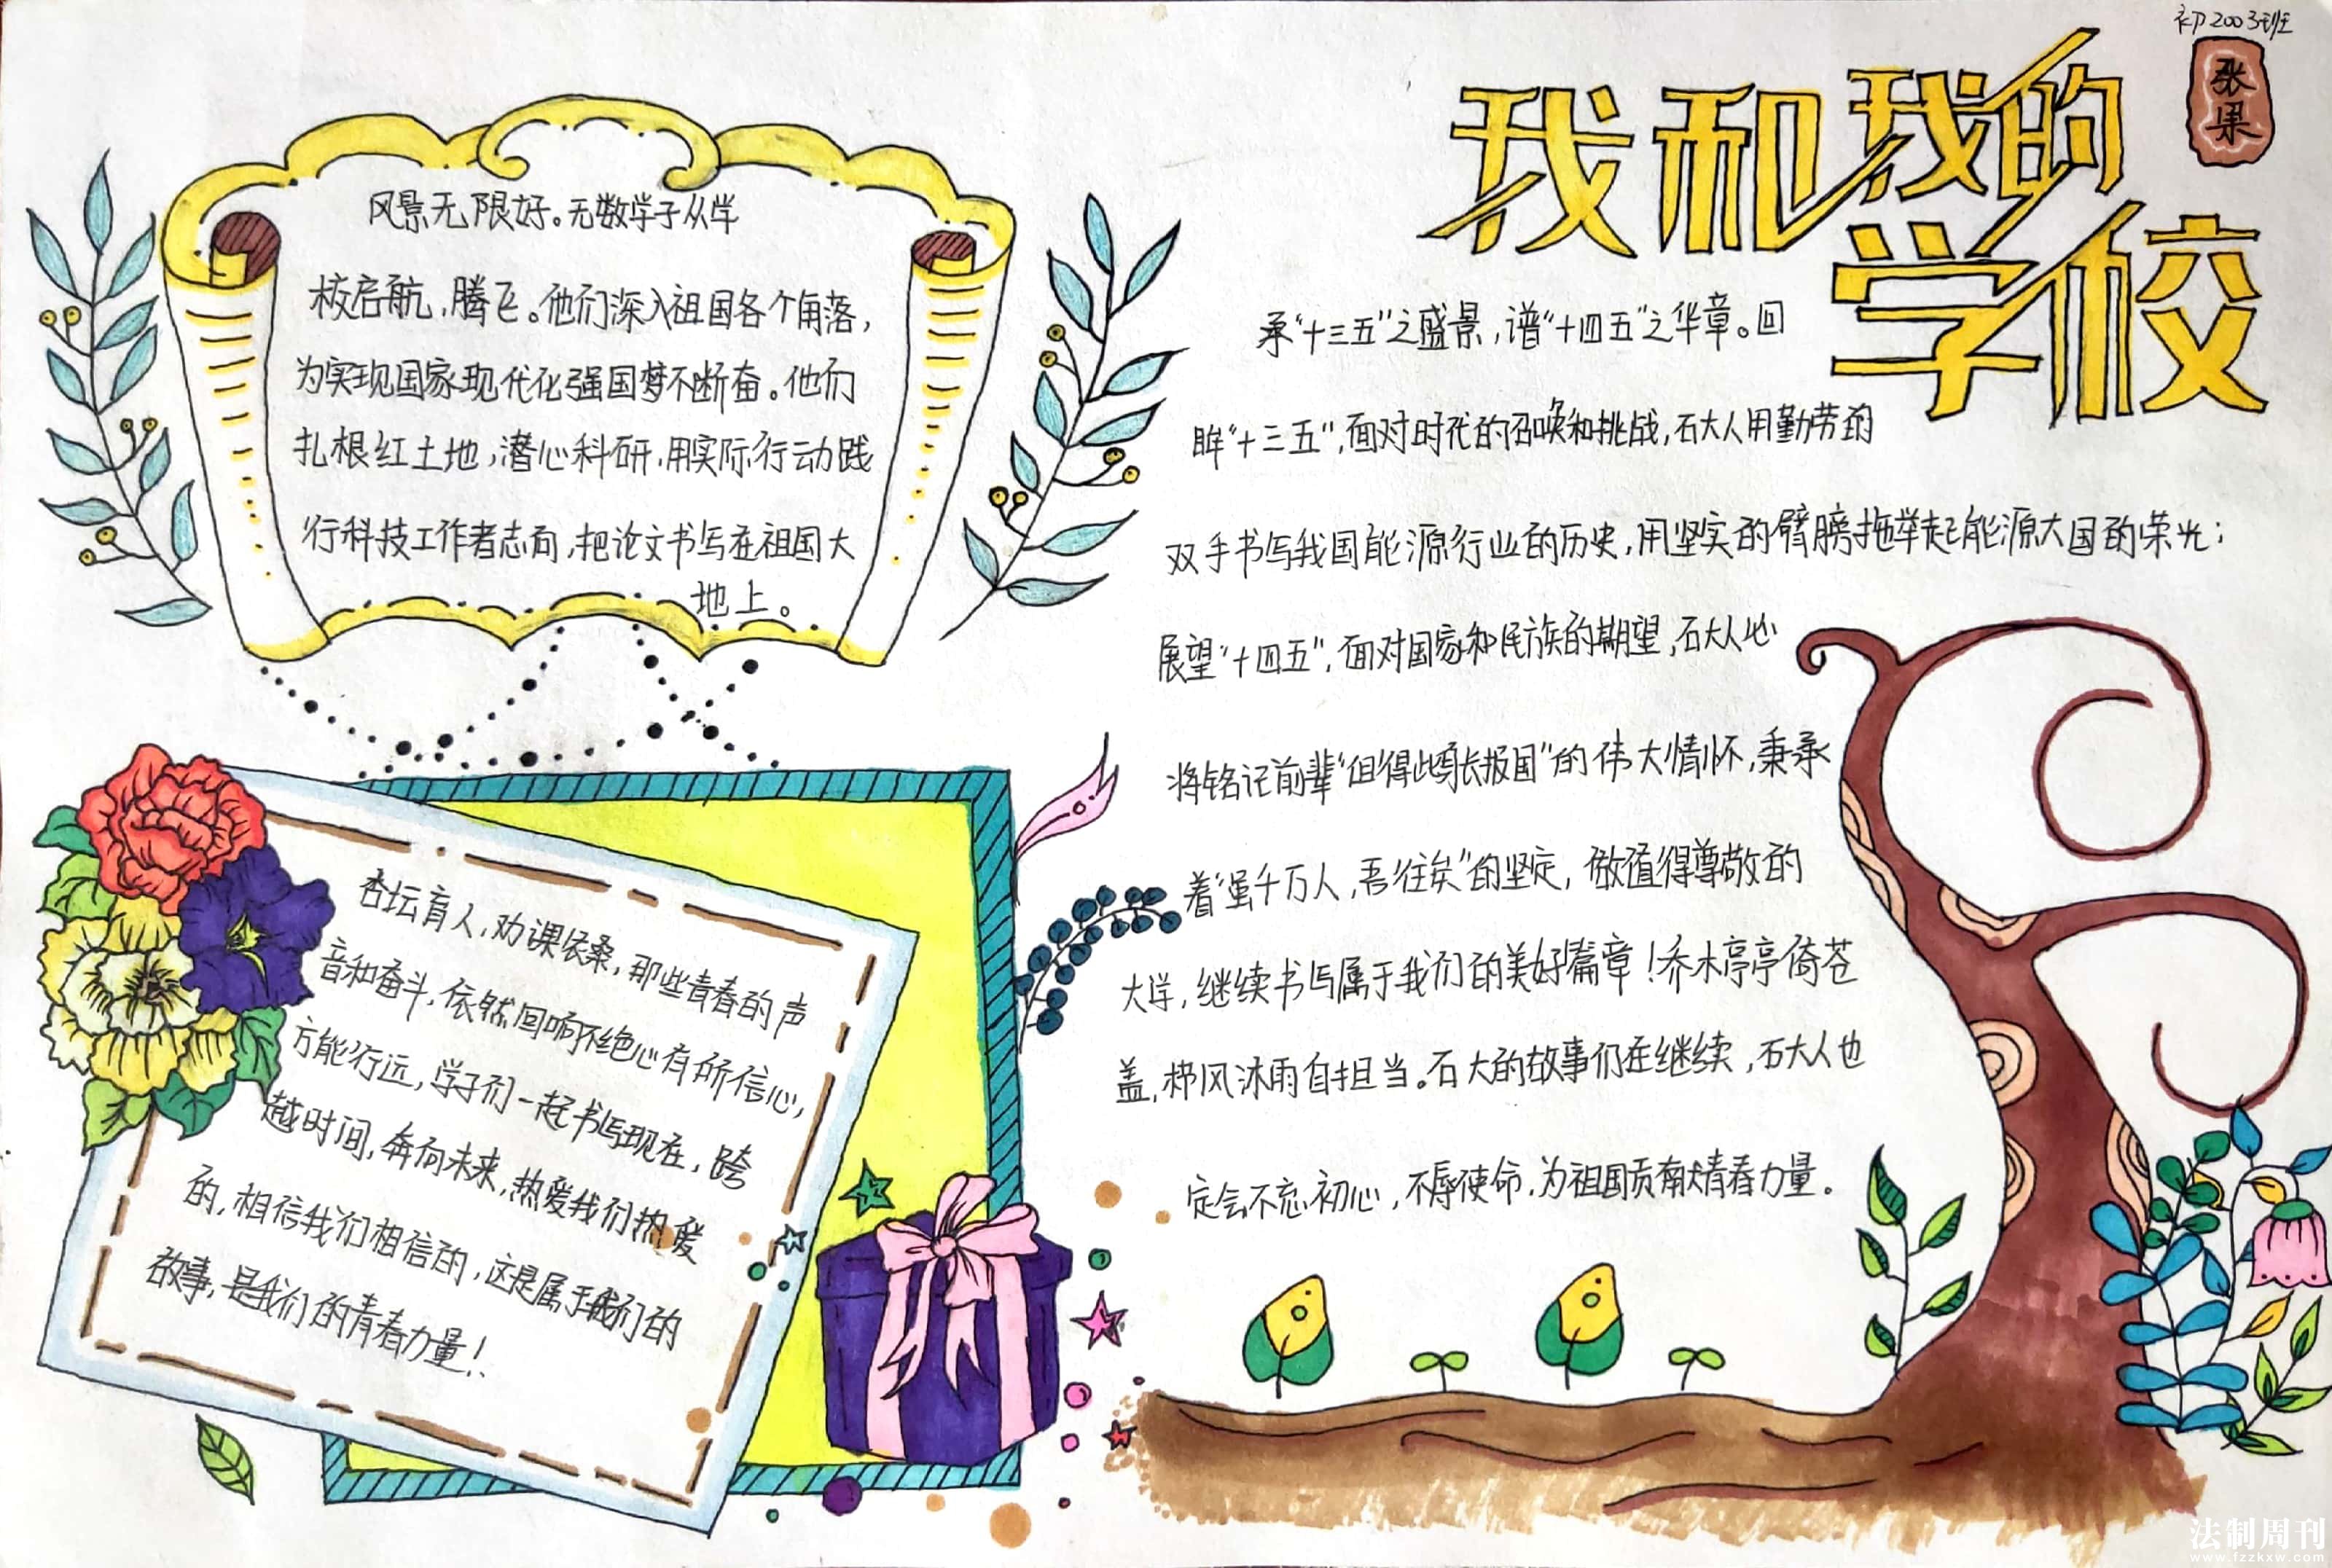 初2003班
张果
我和我的
学校
风景无限好。无数学子从学
校启航,腾飞。他们深入祖国各个角落,
为实现国家现代化强国梦不断奋。他们
扎根红土地,潜心科研,用实际行动践
行科技工作者志向,把论文书写在祖国大
地上。
承“十三五”之盛景,谱“十四五”之华章。回
眸“十三五”,面对时代的召唤和挑战,石大人用勤劳的
双手书写我国能源行业的历史,用坚实的臂膀拖举起能源大国的荣光;
展望“十四五”,面对国家和民族的期望,石大人必
将铭记前辈“但得此身长报国”的伟大情怀,秉承
着“虽千万人,吾往矣”的坚定,做值得尊敬的
大学,继续书写属于我们的美好篇章!乔木亭亭倚苍
盖,栉风沐雨自担当。石大的故事们在继续,石大人也
定会不忘初心,不辱使命,为祖国贡献青春力量。
杏坛育人,劝课农桑,那些青春的声
音和奋斗,依然回响不绝心有所信心,
方能行远,学子们一起书写现在,跨
越时间,奔向未来,热爱我们热爱
的,相信我们相信的,这是属于我们的
故事,是我们的青春力量!
法制周刊
www.fzzkxw.com